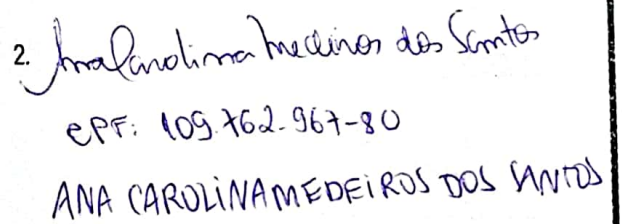 2. Ana Carolina Medeiros dos Santos
CPF: 109.762.967-80
ANA CAROLINA MEDEIROS DOS SANTOS